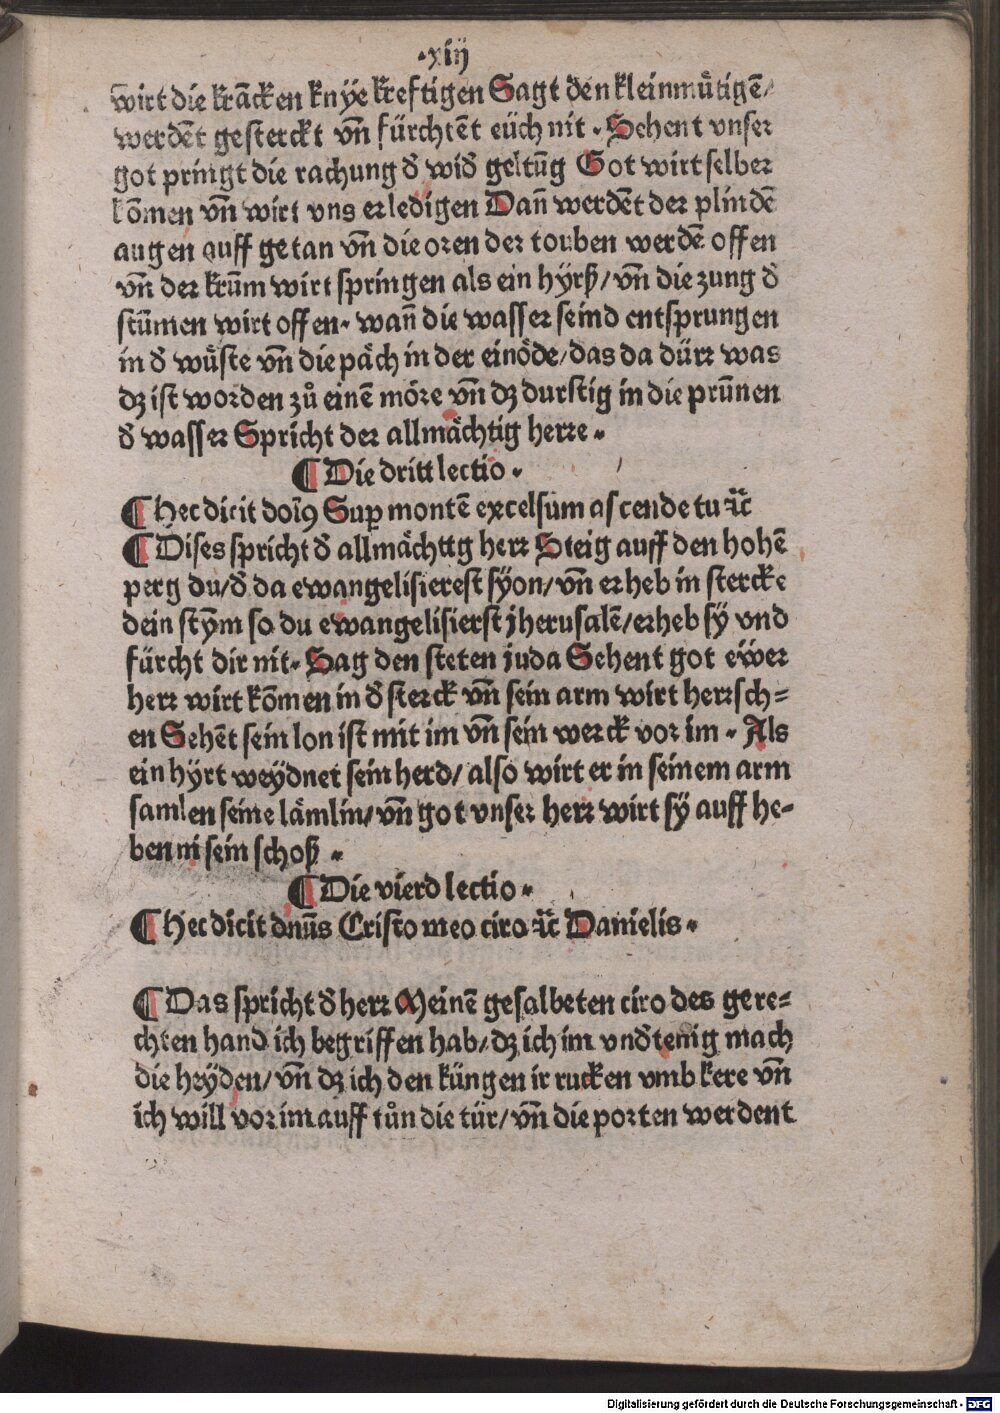 ·xiij
wirt die krācken knÿe kreftigen Sagt den kleinmuͤtigē/
werdēt gesterckt vn̄ fürchtēt eüch nit · Sehent vnser
got pringt die rachung d̕ wid̕ geltūg Got wirt selber
kōmen vn̄ wirt vns erledigen Dan̄ werdēt der plindē
augen auff getan vn̄ die oren der touben werdē offen
vn̄ der krūm wirt springen als ein hÿrß/ vn̄ die zung d̕
stūmen wirt offen· wan̄ die wasser seind entsprungen
in d̕ wuͤste vn̄ die paͤch in der einoͤde/das da dürr was
dz ist worden zuͦ einē moͤre vn̄ dz durstig in die prūnen
d̕ wasser Spricht der allmaͤchtig herre·
¶ Die dritt lectio·
¶ Hec dicit doīꝰ Suꝑ montē excelsum ascende tu ⁊c̄
¶ Dises spricht d̕ allmaͤchttg herr Steig auff den hohē
perg du/d̕ da ewangelisierest sÿon/vn̄ erheb in stercke
dein stȳm so du ewangelisierst jherusalē/erheb sÿ vnd
fürcht dir nit· Sag den steten juda Sehent got eẅer
herr wirt kōmen in d̕ sterck vn̄ sein arm wirt herrsch⸗
en Sehēt sein lon ist mit im vn̄ sein werck vor im · Als
ein hÿrt weÿdnet sein herd/ also wirt er in seinem arm
samlen seine laͤmlin/vn̄ got vnser herr wirt sÿ auff he⸗
ben ni sein schoß ·
¶ Die vierd lectio·
¶ Hec dicit dn̄ūs Cristo meo ciro ⁊c̄ Danielis·
¶ Das spricht d̕ herr Meinē gesalbeten ciro des gere⸗
chten hand ich begriffen hab/dz ich im vnd̕tenig mach
die heÿden/ vn̄ dz ich den küngen ir rucken vmb kere vn̄
ich will vor im auff tuͦn die tür/ vn̄ die porten werdent
Digitalisierung gefördert durch die Deutsche Forschungsgemeinschaft - DFG